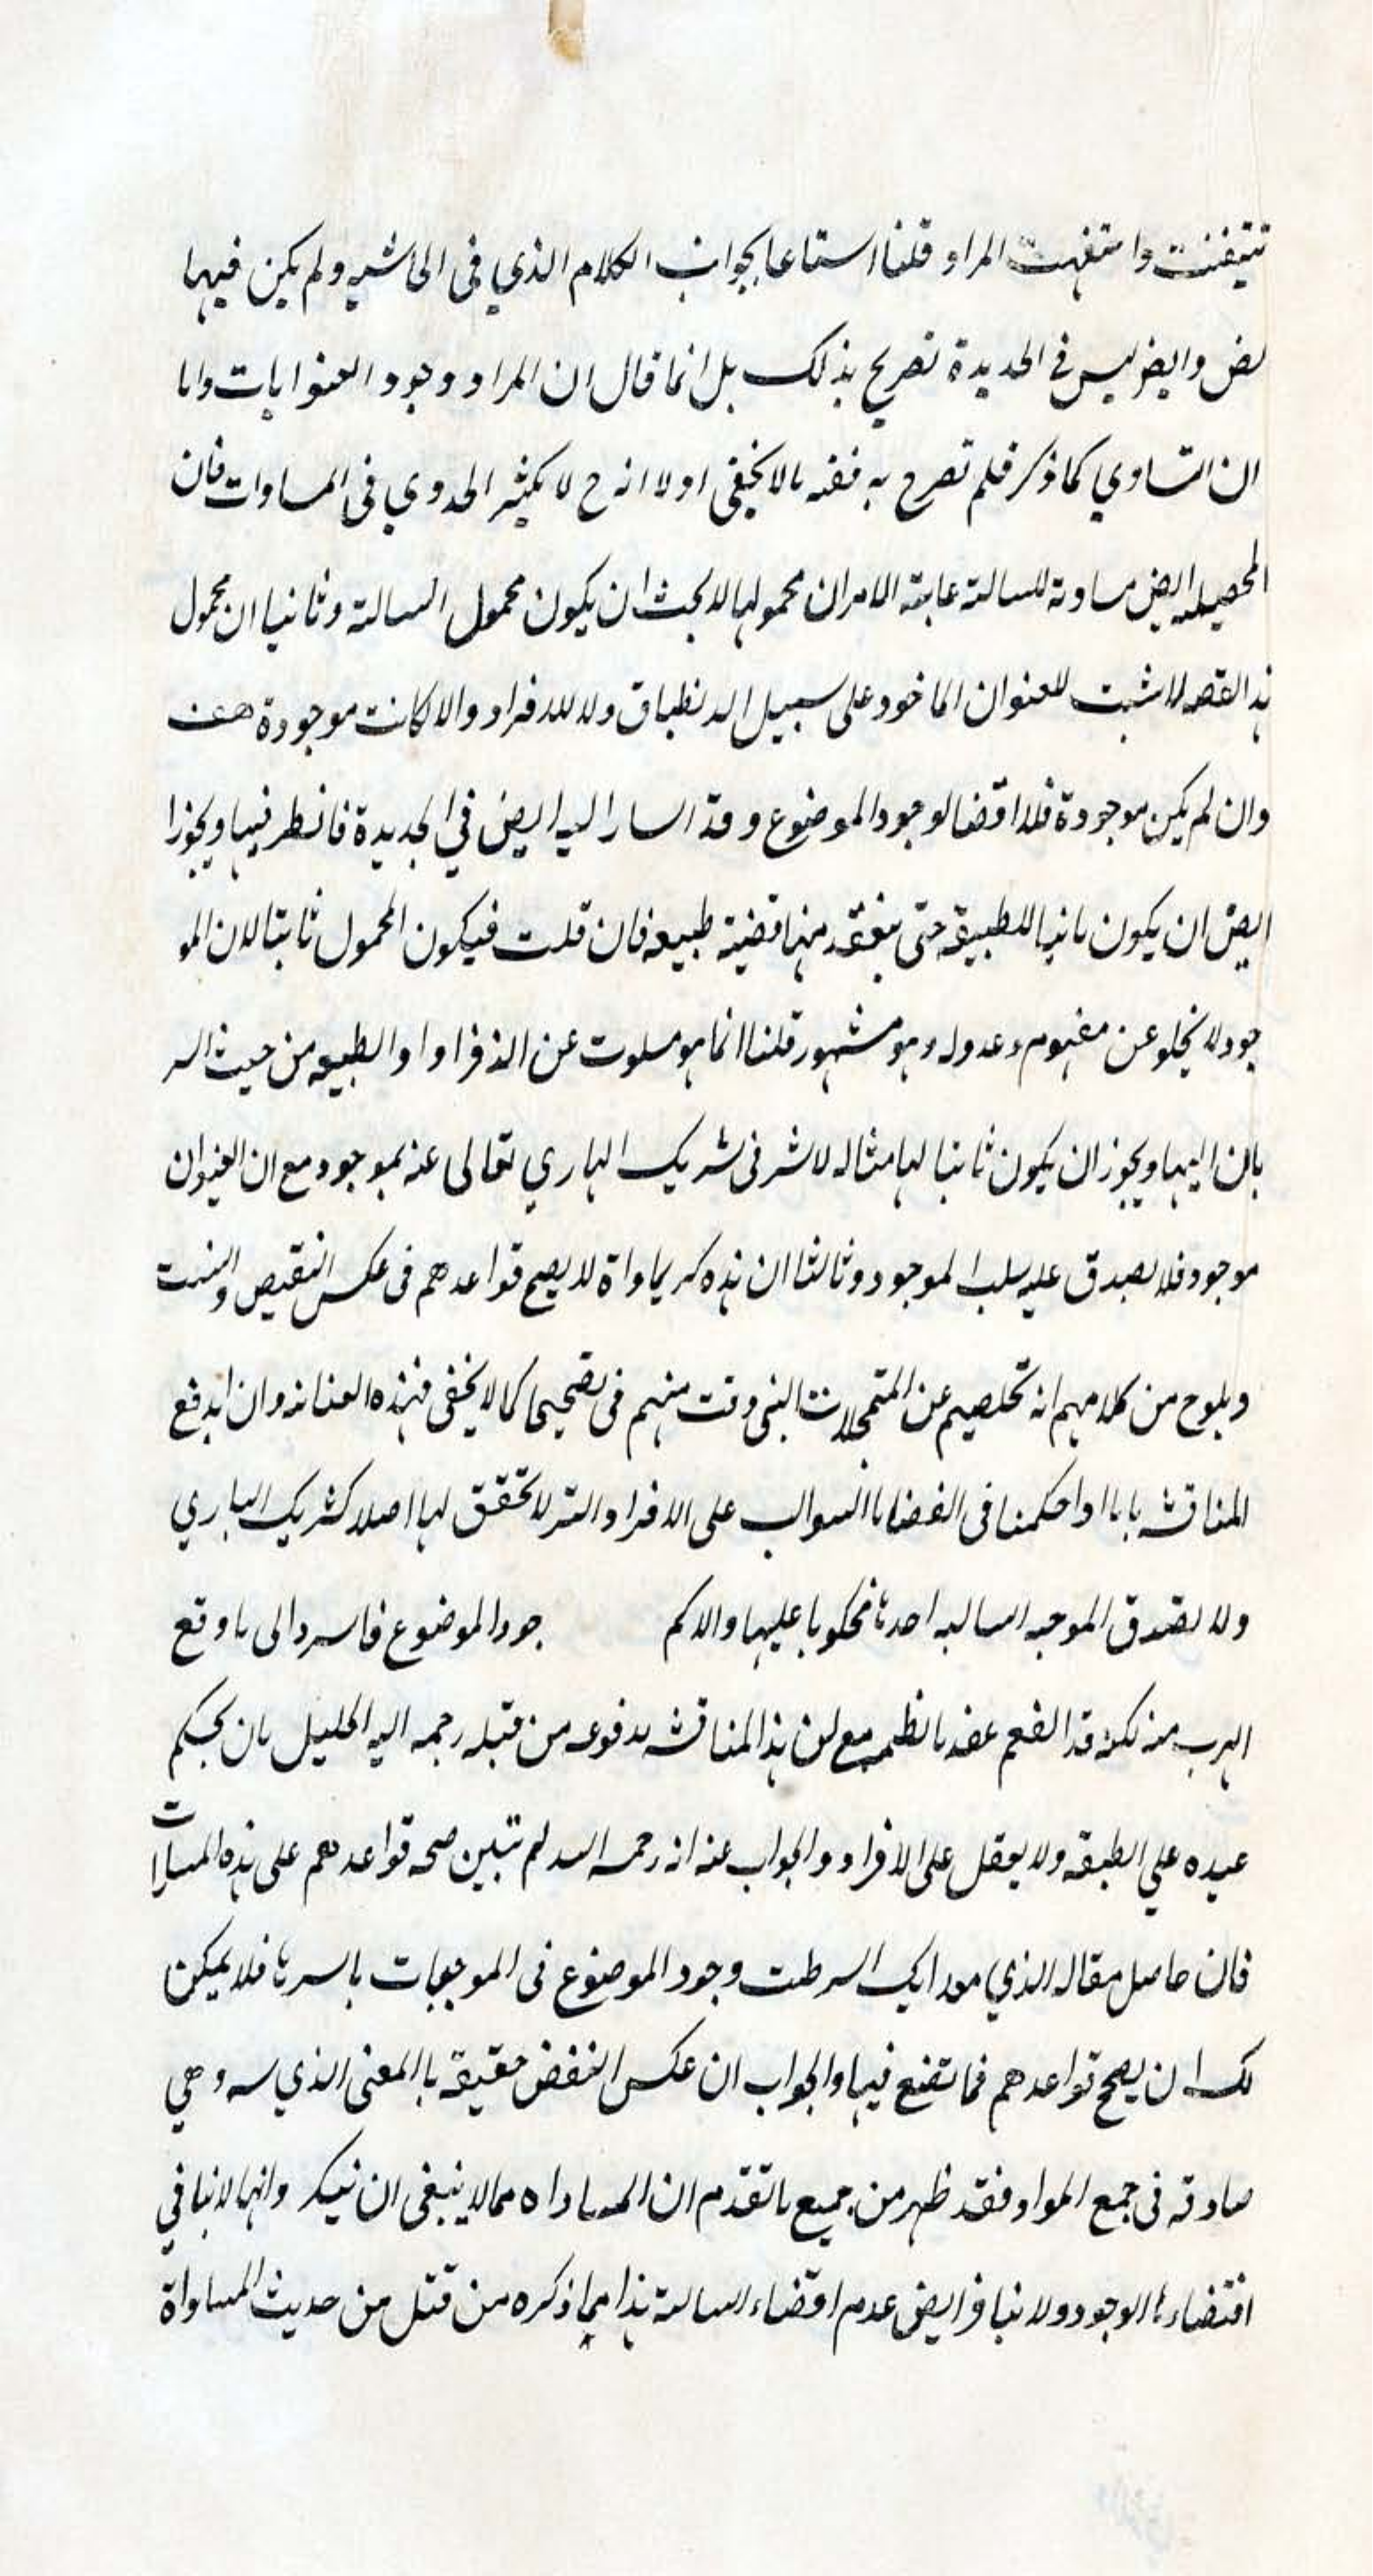 تتيفنت وا ستفهمت المراد قلنا استا عا بجواب الكلام الذي في الحاشيه ولم يكن فيها
نص وايض ليس في الجديدة تصريح بذلك بل انما قال ان المراد وجود العنوانات واما
ان التساوي كما ذكر فلم تصرح به ففيه مالا يخفى اولا انه ح لا يكثر الجدوي في المساوات فان
المحصله ايض مساوية للسالبة غاية الامر ان محمولها لا يجب ان يكون محمول السالبة وثانيا ان محمول
هذا القصه لا يثبت للعنوان الماخود على سبيل الانطباق ولا للافراد والا كانت موجودة هف
وان لم يكن موجودة فلا اقتضا لوجود الموضوع وقد اسار اليه ايض في الجديدة فانظر فيها ويجوز ا
ايض ان يكون ثانيا للطبيعة حتى ينعقد منها قضية طبيعه فان قلت فيكون المحمول ثابتا لان المو
جود لا يخلو عن مفهوم وعدوله وهو مشهور قلنا انما هو مسلوب عن الافراد او الطبيعه من حيث السر
يان اليها ويجوز ان يكون ثابتا لها مثاله لا شر في شريك الباري تعالى عنه بموجود مع ان العنوان
موجود فلا يصدق عليه سلب الموجود وثالثا ان هذه كر يماواة لا يصح قواعدهم في عكس النقيض والنسب
ويلوح من كلامهم انه تخلصيم عن التمحلات التي وقت منهم في تصحيحها كما لا يخفى فهذه العنانه وان اندفع
المناقشه بانا اذا حكمنا في القضايا السوالب على الافراد والتر لا تحقق لها اصلا كشريك الباري
ولا تصدق الموجبه السالبه احدثا محكوبا عليها والا كم جود الموضوع فاسر دالى ما وقع
الهرب منه لكنه قد انفهم عقد بالظم مع ان هذا المناقشه مدفوعه من قبله رحمه اليه الجليل بان يحكم
عيده علي الطبيعه ولا يعقل على الافراد والجواب عنه انه رحمه الله لم تتبين صحه قواعدهم على هذه المساوات
فان حاصل مقاله الذي مورد ايك السرطت وجود الموضوع في الموجبات باسرها فلا يمكن
لك ان يصحح قواعدهم فما تقنع فيها والجواب ان عكس النقض حقيقة بالمعنى الذي سه وهي
صادقه في جمع المواد فقد ظهر من جميع ما تقدم ان المساواه مما لا ينبغي ان ينكر وانها لا ينافي
اقتضاء ها الوجود ولا ينافر ايض عدم اقتضاء السالبة هذا مما ذكره من قبل من حديث المساواة